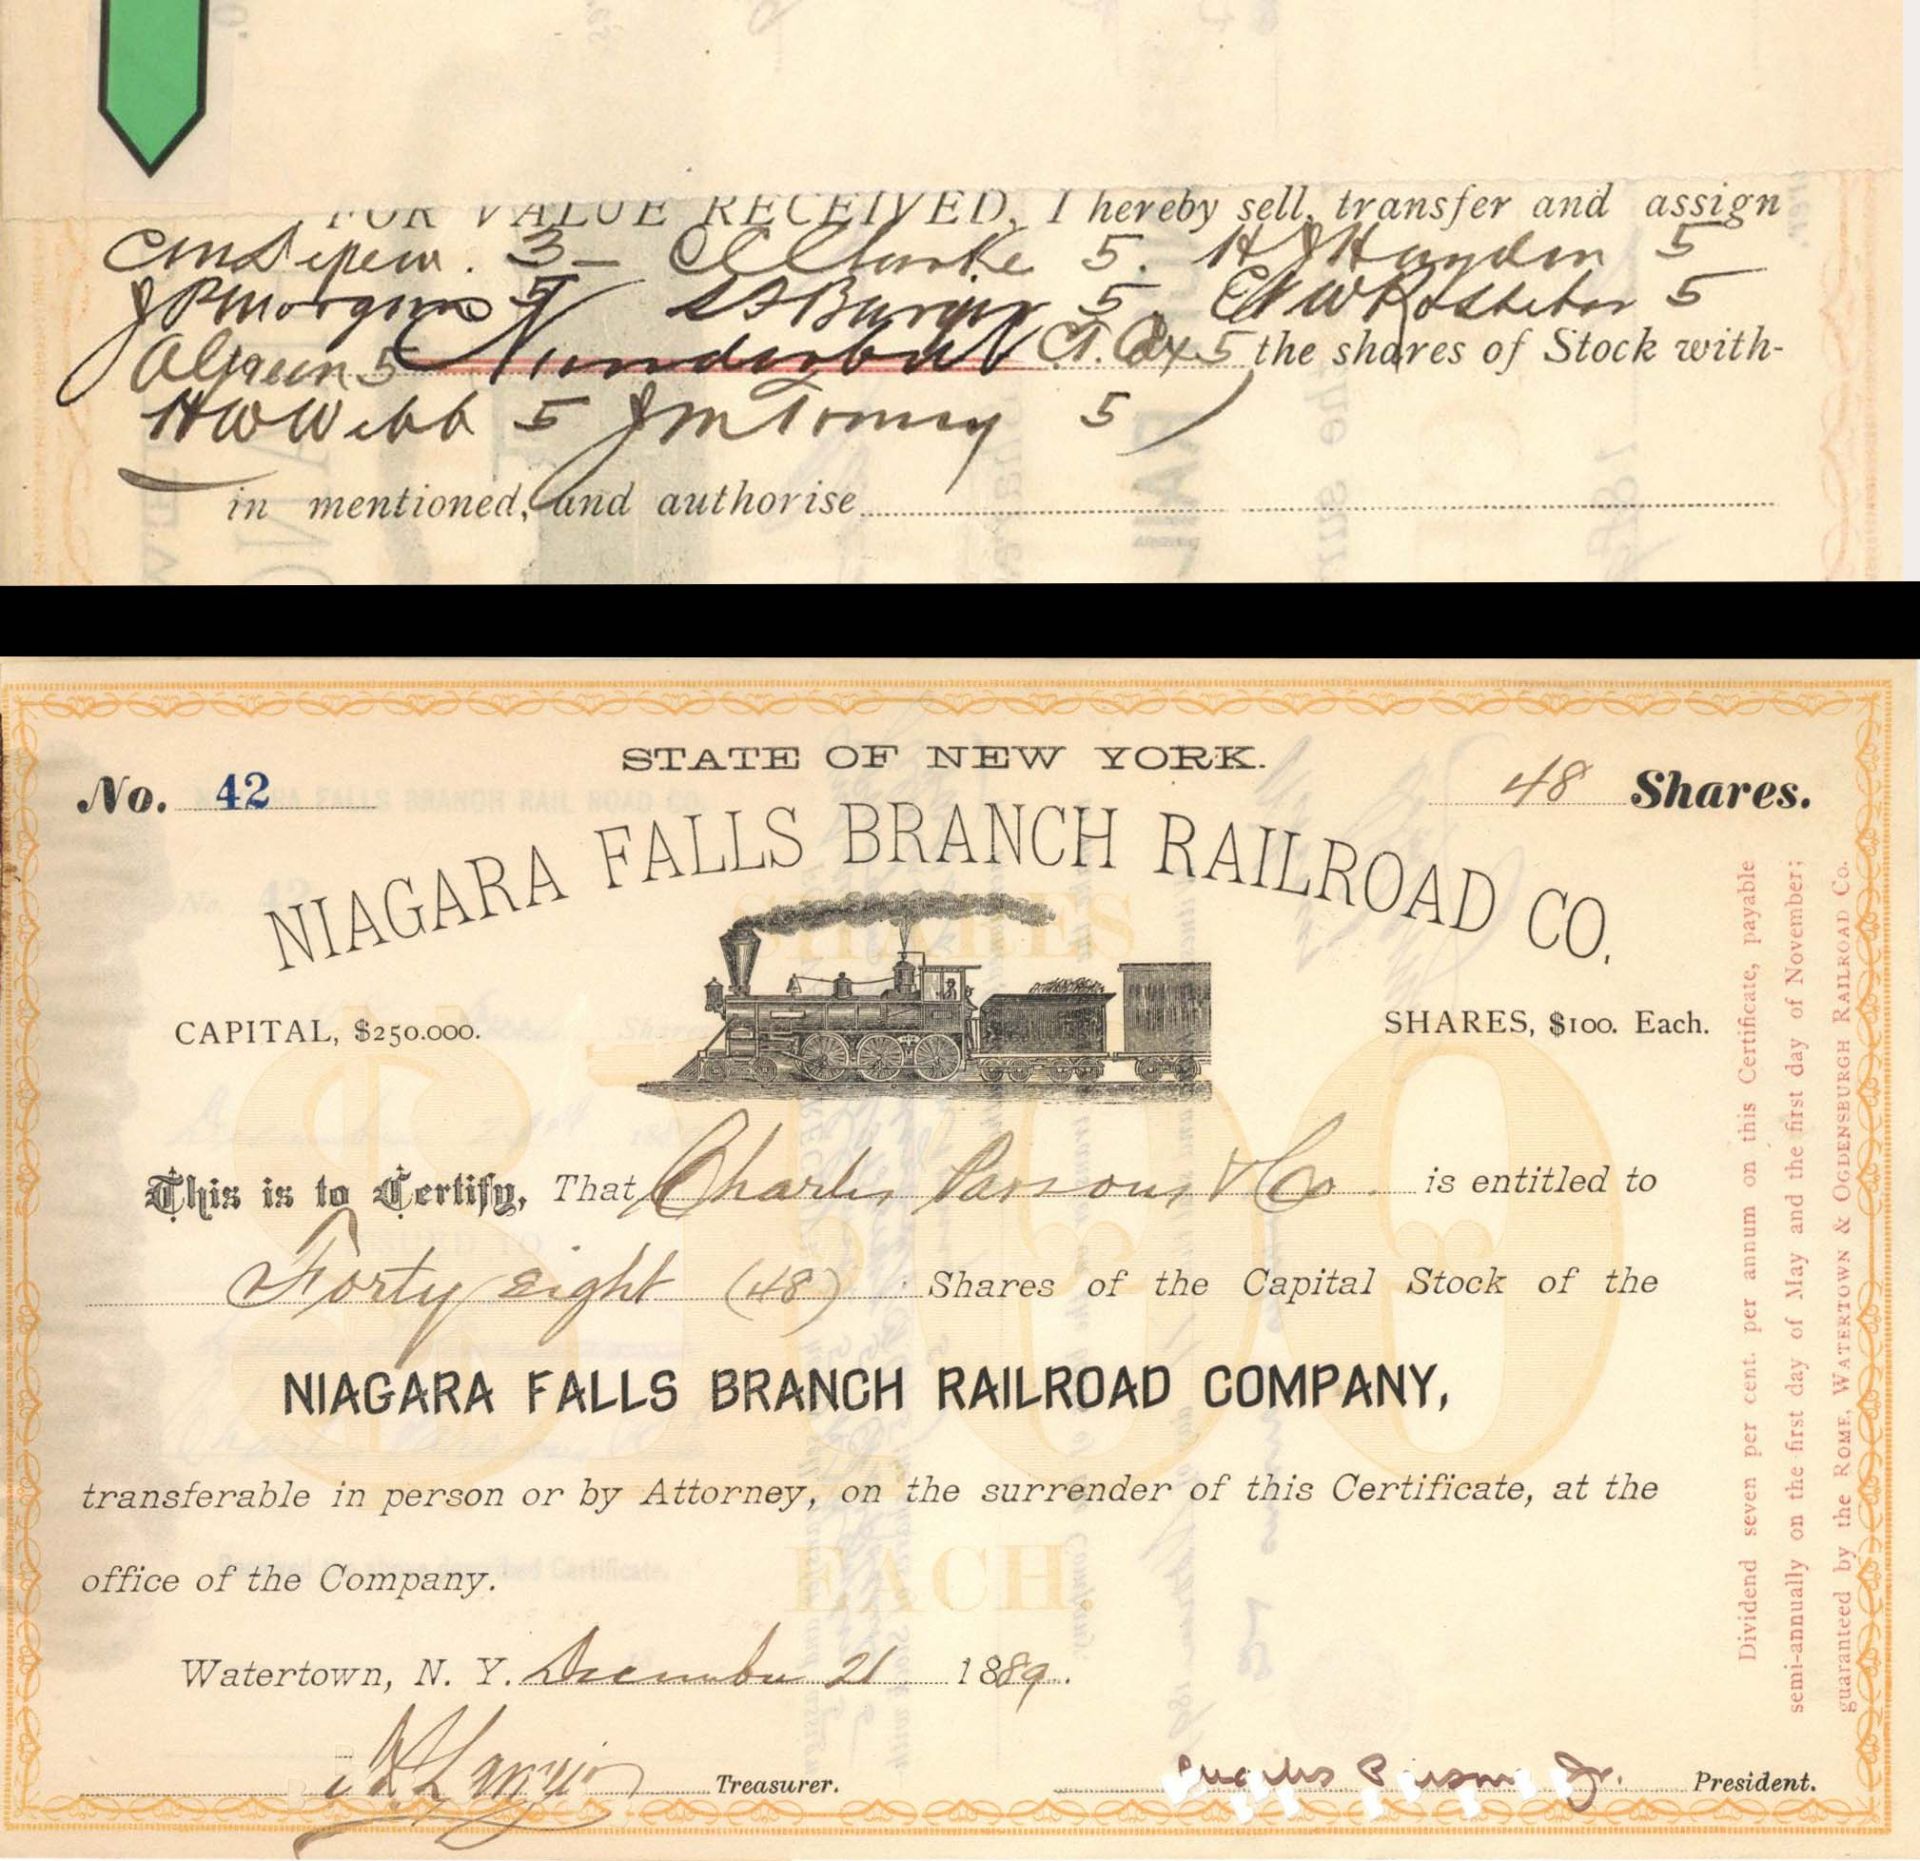 FOR VALUE RECEIVED, I hereby sell, transfer and assign
CMDepew. 3 – CCClarke 5. H J Hayden 5
JPMorgan 5 5 E V W Rossiter 5
A Green 5 C. Vanderbilt C. F. Cox 5 the shares of Stock with-
H W Webb 5 J M Toucey 5
in mentioned, and authorise
STATE OF NEW YORK.
No. 42
48 Shares.
NIAGARA FALLS BRANCH RAILROAD CO.
CAPITAL, $250.000.
SHARES, $100. Each.
This is to Certify, That Charles Parsons & Co. is entitled to
Forty eight (48) Shares of the Capital Stock of the
NIAGARA FALLS BRANCH RAILROAD COMPANY,
transferable in person or by Attorney, on the surrender of this Certificate, at the
office of the Company.
Watertown, N. Y. December 21 1889.
Treasurer.
Charles Parsons Jr. President.
Dividend seven per cent. per annum on this Certificate, payable
semi-annually on the first day of May and the first day of November;
guaranteed by the ROME, WATERTOWN & OGDENSBURGH RAILROAD Co.
$100
SHARES
EACH